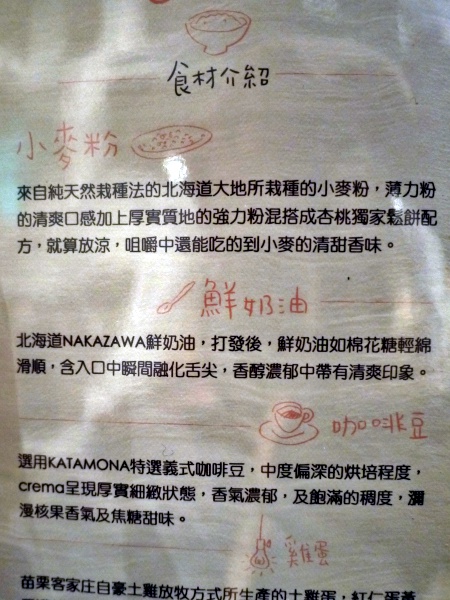 食材介紹
小麥粉
來自純天然栽種法的北海道大地所栽種的小麥粉，薄力粉
的清爽口感加上厚實質地的強力粉混搭成杏桃獨家鬆餅配
方，就算放涼，咀嚼中還能吃的到小麥的清甜香味。
鮮奶油
北海道NAKAZAWA鮮奶油，打發後，鮮奶油如棉花糖輕綿
滑順，含入口中瞬間融化舌尖，香醇濃郁中帶有清爽印象。
咖啡豆
選用KATAMONA特選義式咖啡豆，中度偏深的烘培程度，
crema呈現厚實細緻狀態，香氣濃郁，及飽滿的稠度，瀰
漫核果香氣及焦糖甜味。
雞蛋
苗栗客家庄自豪土雞放牧方式所生產的土雞蛋，紅仁蛋黃